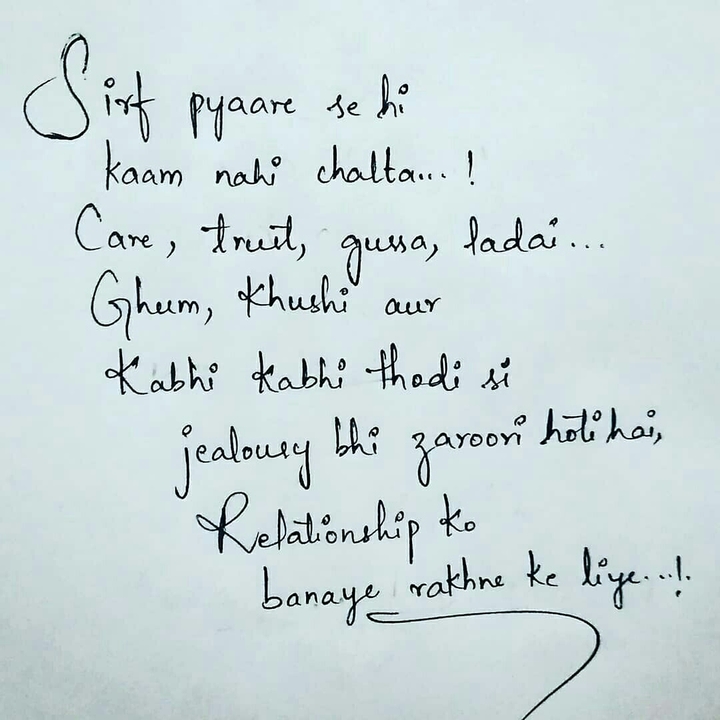 Sirf pyaare se hi
kaam nahi chalta...!
Care, trust, gussa, ladai...
Ghum, Khushi aur
Kabhi kabhi thodi si
jealousy bhi zaroori hoti hai,
Relationship ko
banaye rakhne ke liye...!.